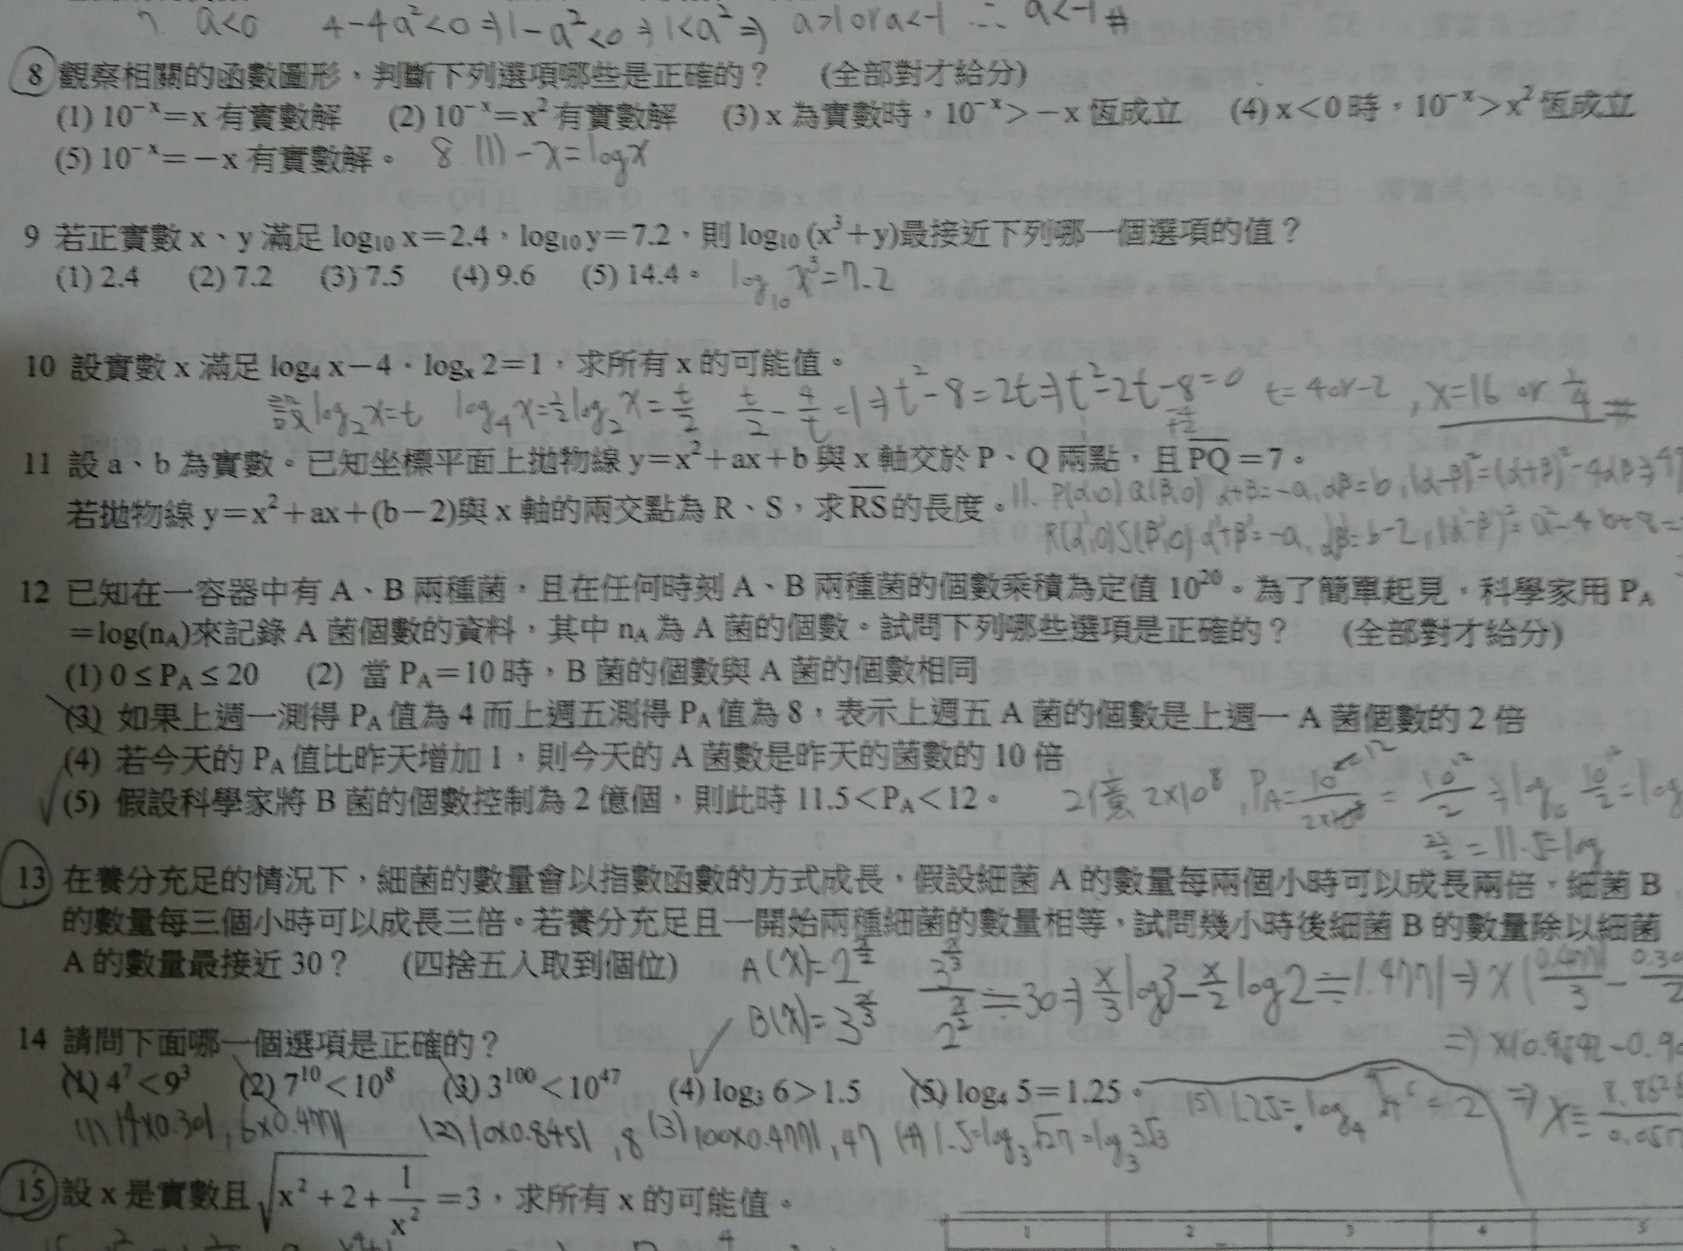 a<0 4-4a²<0⇒1-a²<0⇒1<a²⇒ a>1 or a<-1 ∴ a<-1 #
8 觀察相關的函數圖形,判斷下列選項哪些是正確的? (全部對才給分)
(1) 10⁻ˣ=x 有實數解 (2) 10⁻ˣ=x² 有實數解 (3) x 為實數時,10⁻ˣ>-x 恆成立 (4) x<0 時,10⁻ˣ>x² 恆成立
(5) 10⁻ˣ=-x 有實數解。 8 (1) -x=logx
9 若正實數 x、y 滿足 log₁₀ x=2.4,log₁₀ y=7.2,則 log₁₀ (x³+y)最接近下列哪一個選項的值?
(1) 2.4 (2) 7.2 (3) 7.5 (4) 9.6 (5) 14.4。 log₁₀ x³=7.2
10 設實數 x 滿足 log₄ x-4.logₓ 2=1,求所有 x 的可能值。
設log₂x=t log₄x=½log₂x=t/2 t/2-4/t=1⇒t²-8=2t⇒t²-2t-8=0 t=4or-2, x=16 or ¼ #
11 設 a、b 為實數。已知坐標平面上拋物線 y=x²+ax+b 與 x 軸交於 P、Q 兩點,且 PQ=7。
若拋物線 y=x²+ax+(b-2)與 x 軸的兩交點為 R、S,求RS的長度。
11. P(α,0) Q(β,0) α+β=-a, αβ=b, (α-β)²=(α+β)²-4αβ
R(α',0)S(β',0) α'+β'=-a, α'β'=b-2, (α'-β')²=a²-4b+8=
12 已知在一容器中有 A、B 兩種菌,且在任何時刻 A、B 兩種菌的個數乘積為定值 10²⁰。為了簡單起見,科學家用 P_A
=log(n_A)來記錄 A 菌個數的資料,其中 n_A 為 A 菌的個數。試問下列哪些選項是正確的? (全部對才給分)
(1) 0≤P_A≤20 (2) 當 P_A=10 時,B 菌的個數與 A 菌的個數相同
(3) 如果上週一測得 P_A 值為 4 而上週五測得 P_A 值為 8,表示上週五 A 菌的個數是上週一 A 菌個數的 2 倍
(4) 若今天的 P_A 值比昨天增加 1,則今天的 A 菌數是昨天的菌數的 10 倍
(5) 假設科學家將 B 菌的個數控制為 2 億個,則此時 11.5<P_A<12。
2億 2x10⁸, P_A= = 10¹²/2
=11.5=log
13 在養分充足的情況下,細菌的數量會以指數函數的方式成長,假設細菌 A 的數量每兩個小時可以成長兩倍,細菌 B
的數量每三個小時可以成長三倍。若養分充足且一開始兩種細菌的數量相等,試問幾小時後細菌 B 的數量除以細菌
A 的數量最接近 30? (四捨五入取到個位)
A(x)=2^(x/2) 3^(x/3)/2^(x/2)≒30⇒x/3 log3-x/2 log2≒1.4771⇒
B(x)=3^(x/3)
14 請問下面哪一個選項是正確的?
(1) 4⁷<9³ (2) 7¹⁰<10⁸ (3) 3¹⁰⁰<10⁴⁷ (4) log₃ 6>1.5 (5) log₄ 5=1.25。
(1) 14x0.301, 6x0.4771 (2) 10x0.8451, 8 (3) 100x0.4771, 47 (4) 1.5=log₃√27=log₃3√3
15 設 x 是實數且 √(x²+2+1/x²)=3,求所有 x 的可能值。
1 2 3 4 5